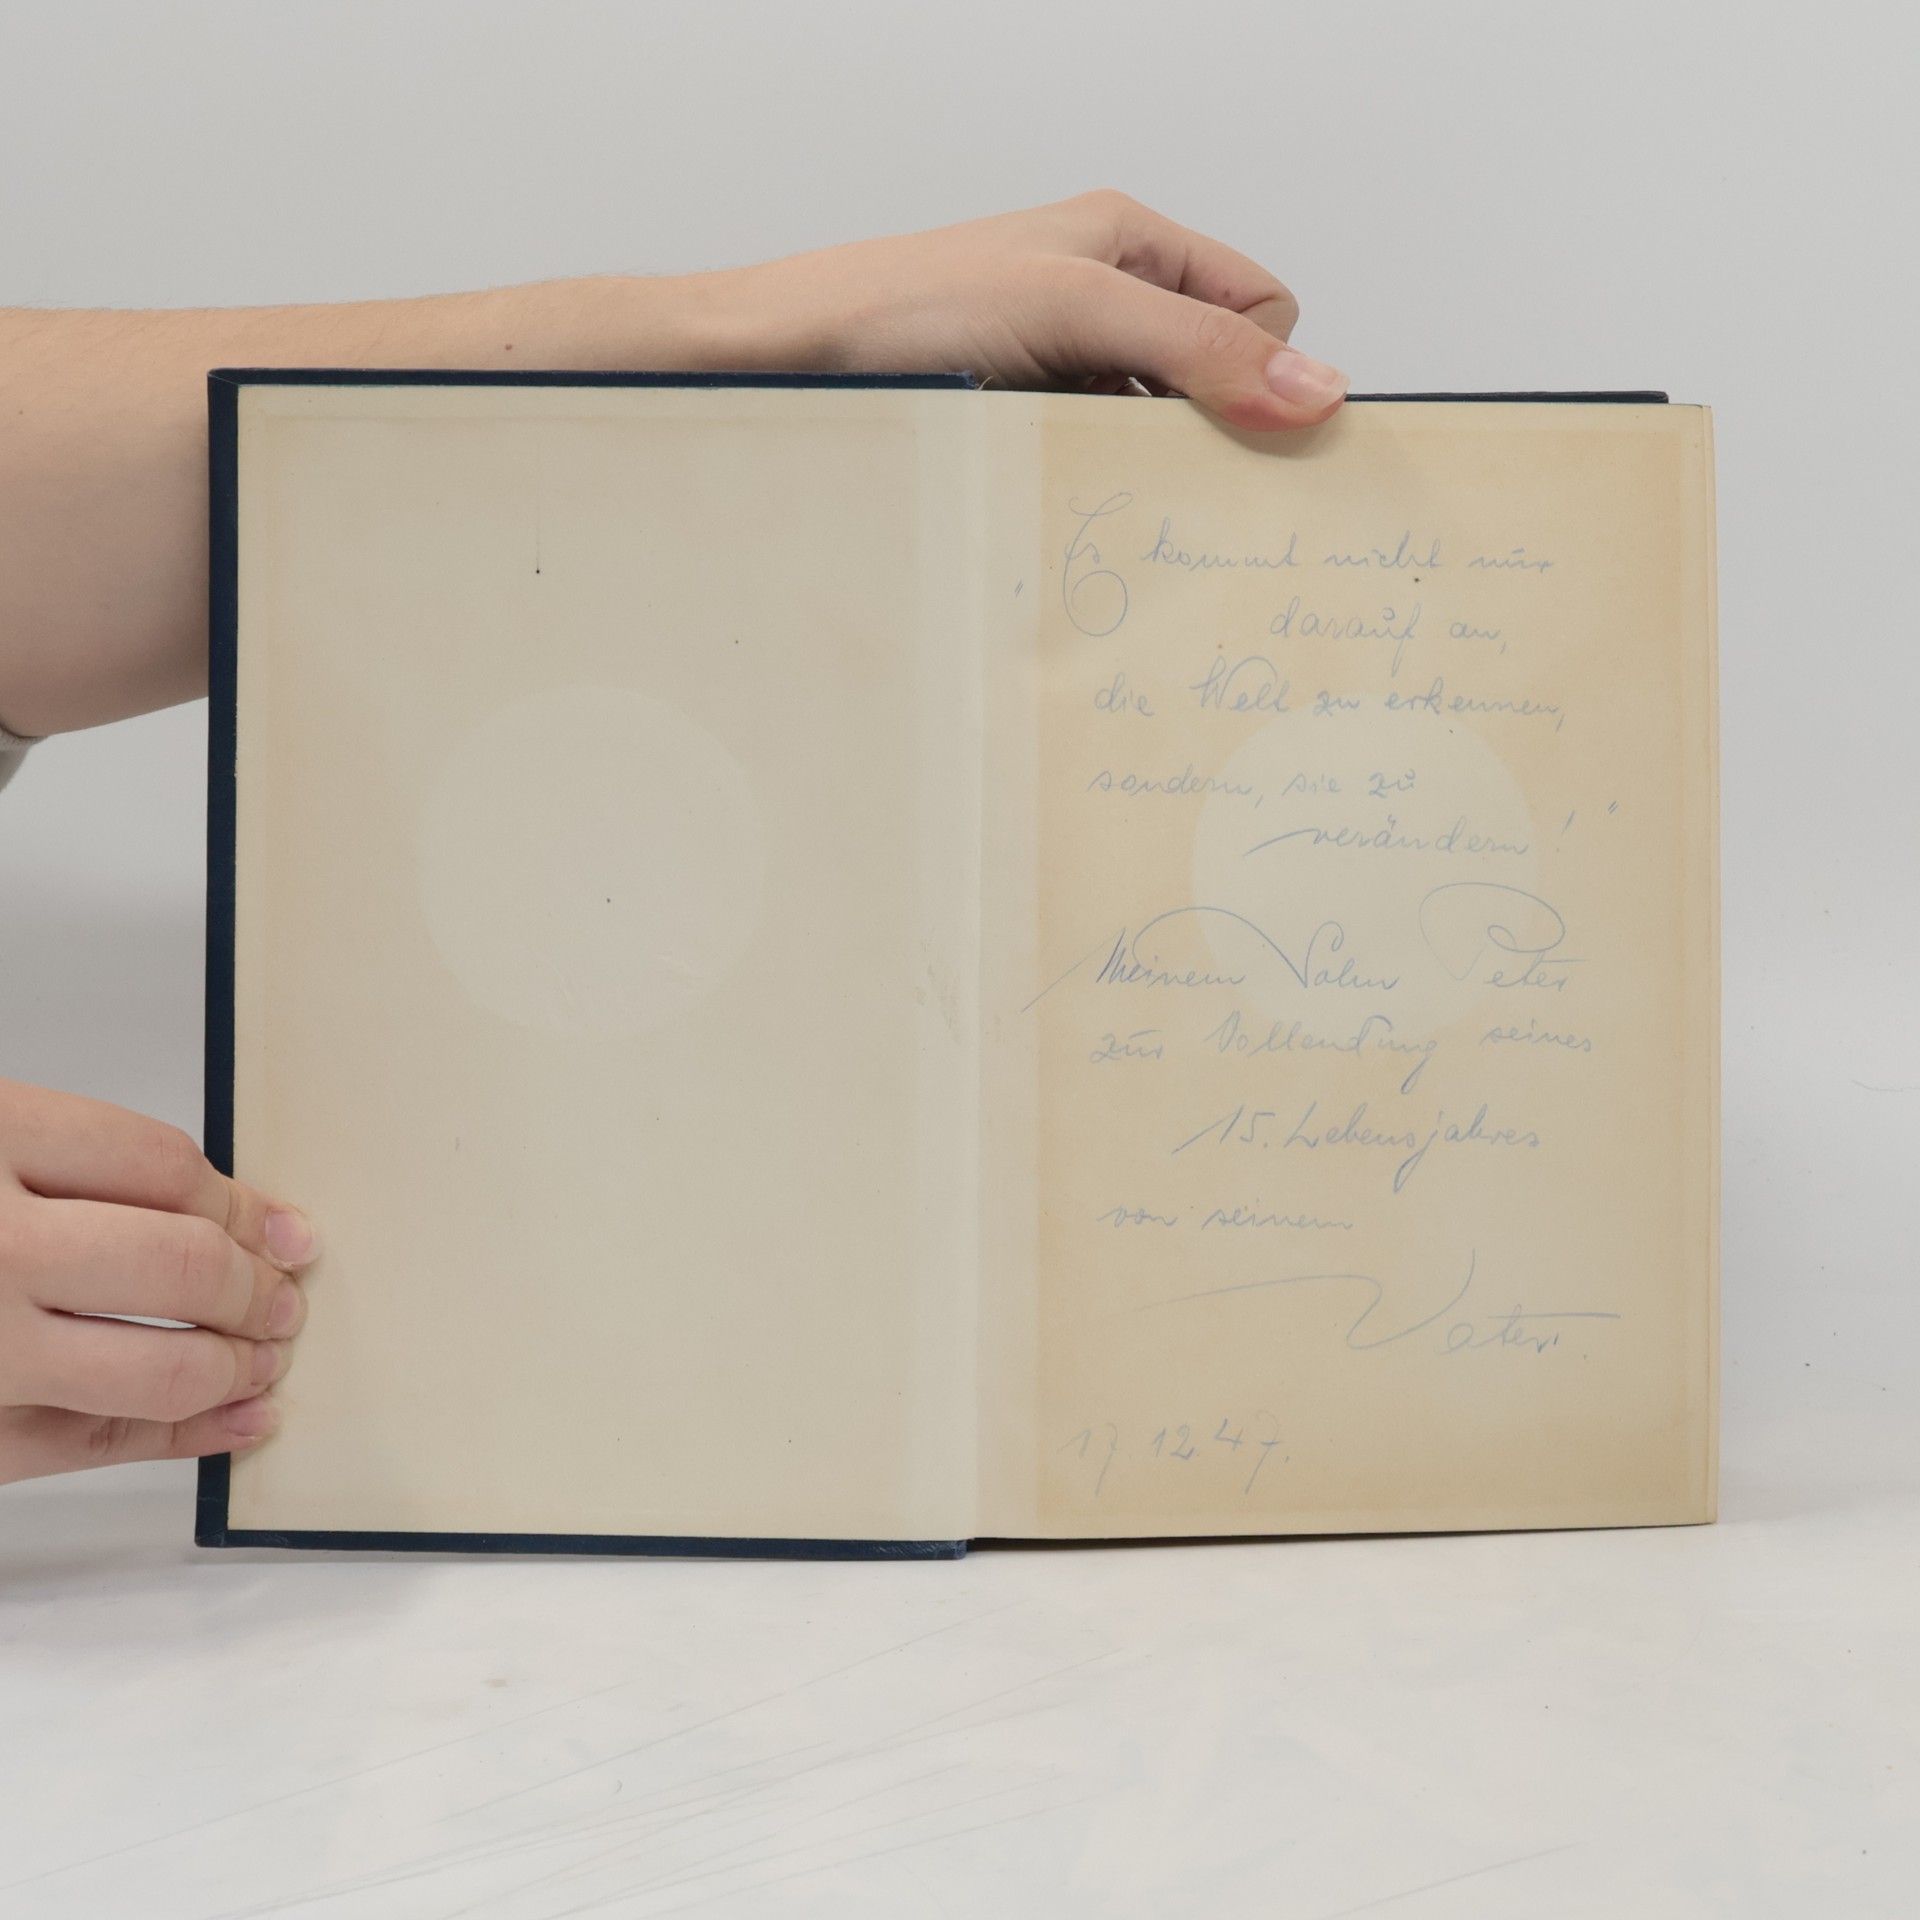 "Es kommt nicht nur
darauf an,
die Welt zu erkennen,
sondern, sie zu
verändern!"
Meinem Sohn Peter
zur Vollendung seines
15. Lebensjahres
von seinem
Vater.
17.12.47.